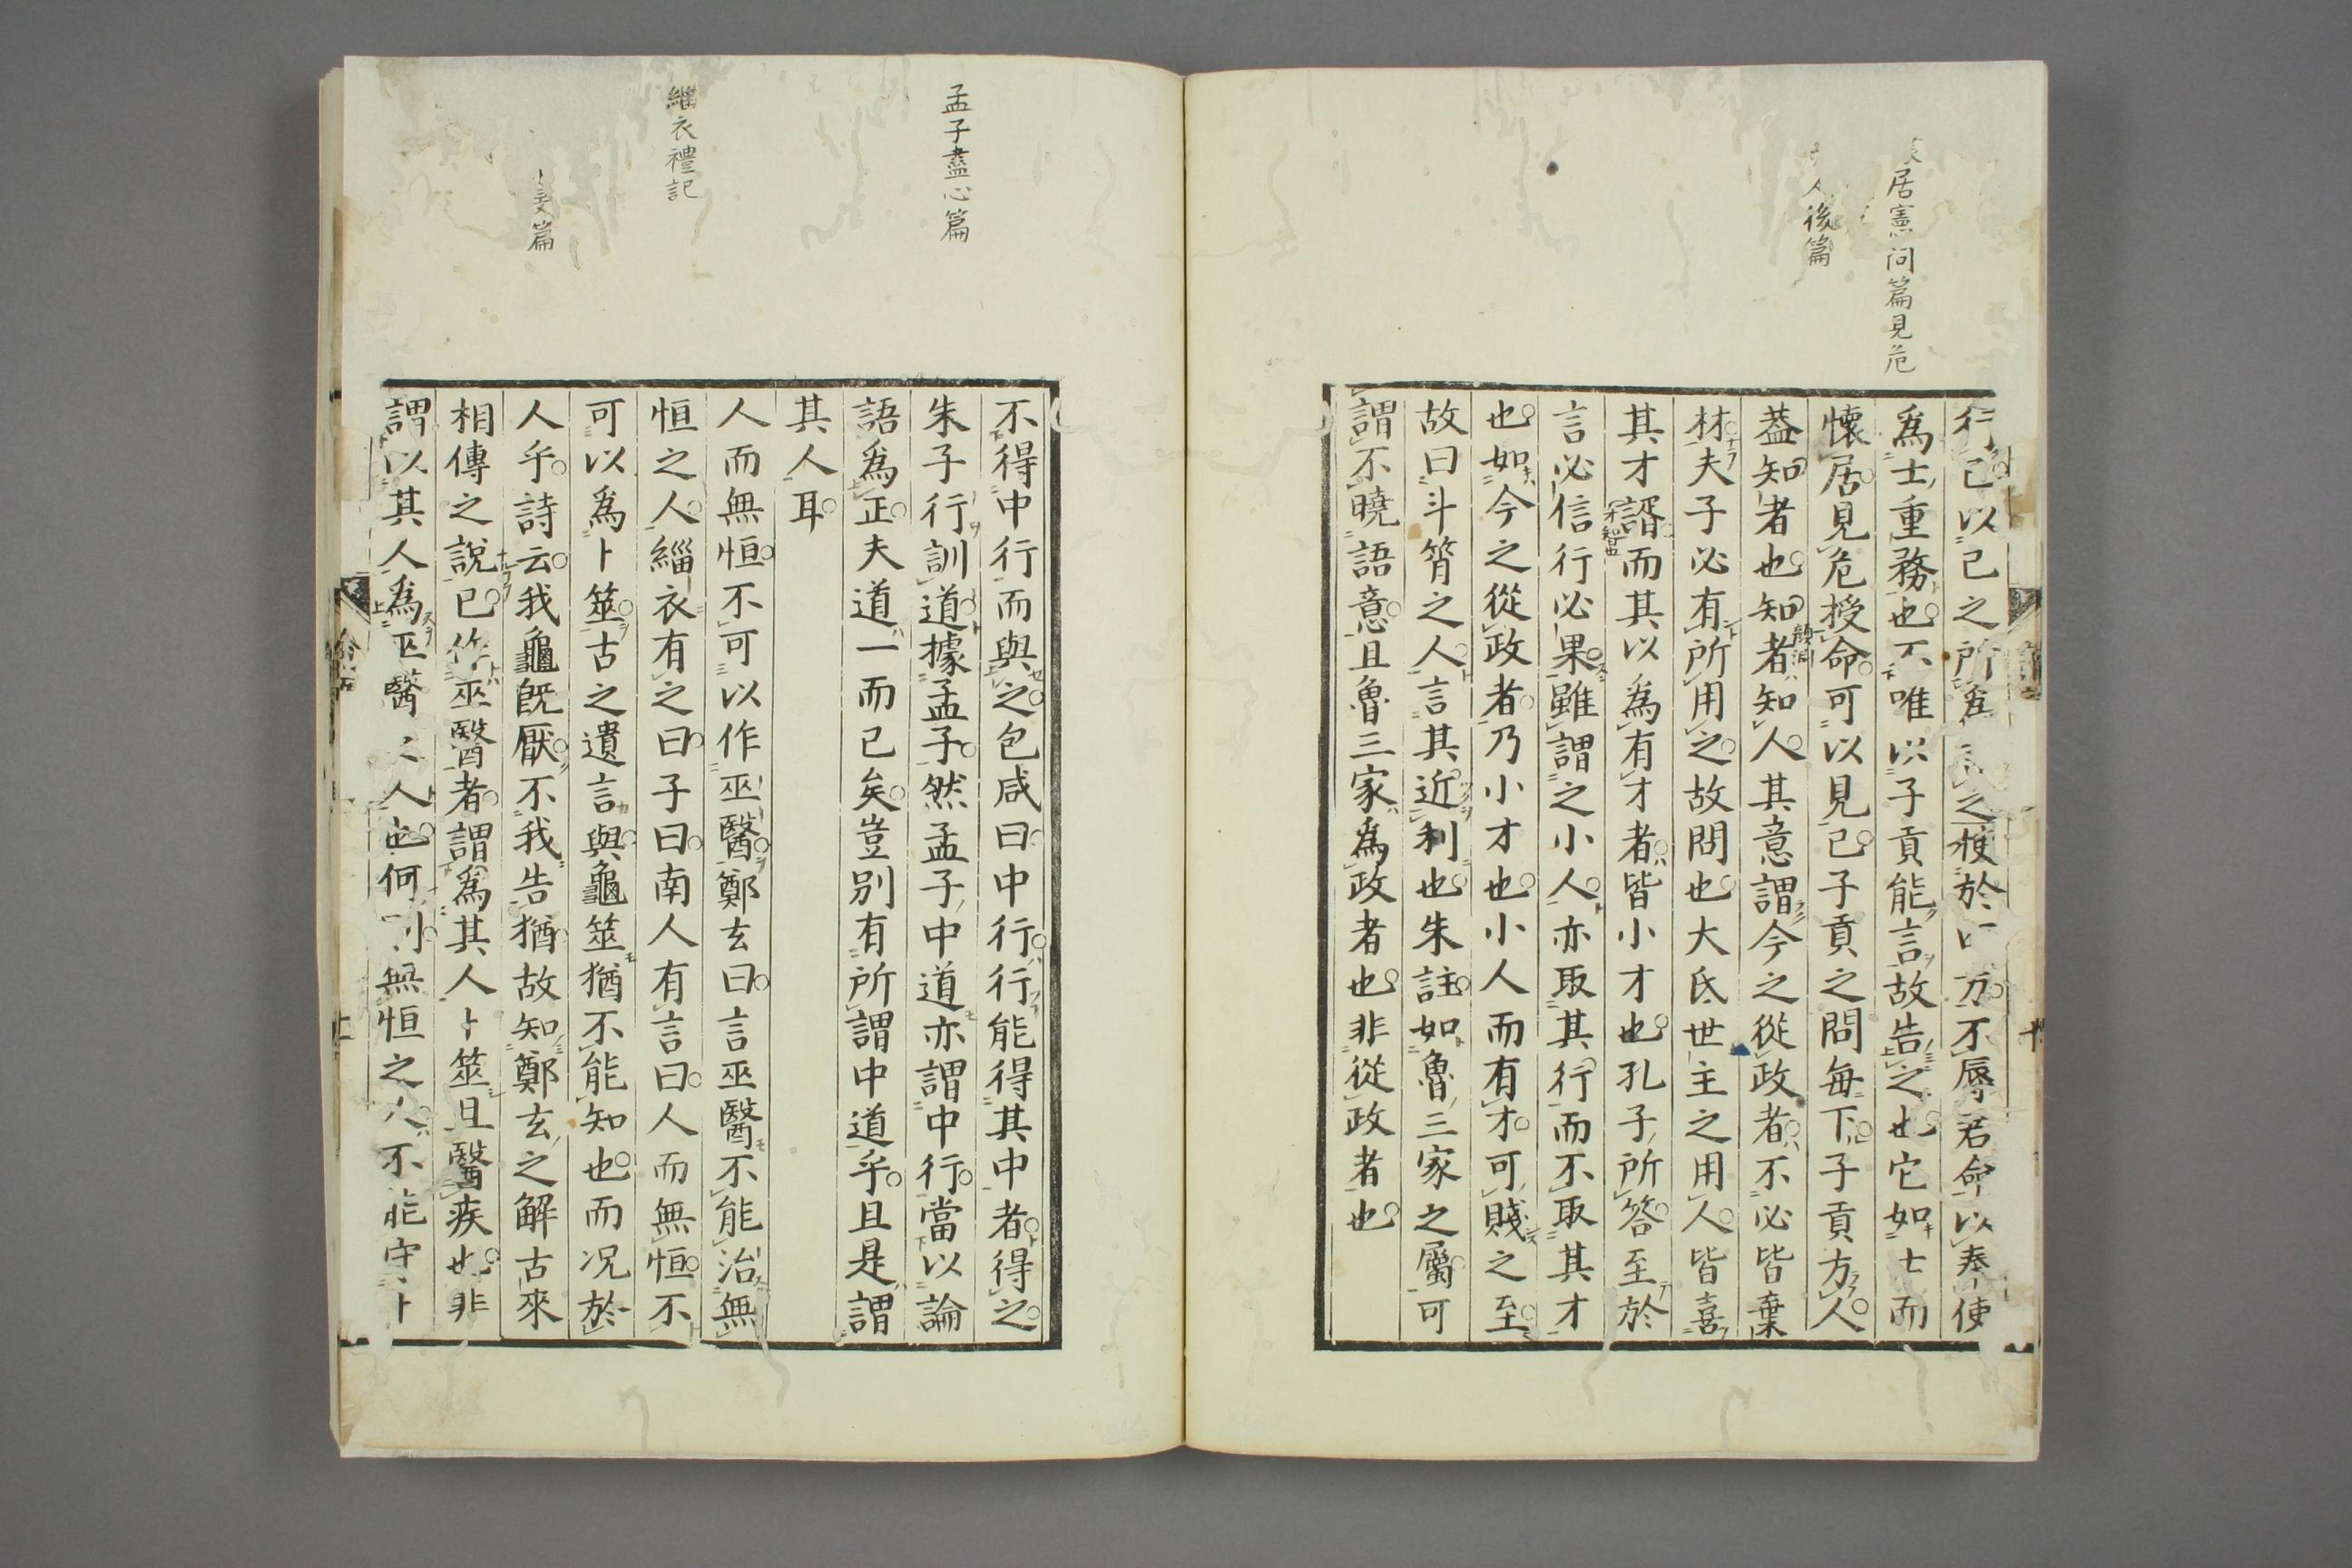 居憲问篇見危
人後篇
行己以己之所爲言之使於四方不辱君命以奉使
爲士重務也不唯以子貢能言故告之也它如士而
懷居見危授命可以見已子貢之問每下子貢方人
蓋知者也知者知人其意謂今之從政者不必皆棄
顏淵
材夫子必有所用之故問也大氐世主之用人皆喜
其才諝而其以爲有才者皆小才也孔子所答至於
才智也
言必信行必果雖謂之小人亦取其行而不取其才
也如今之從政者乃小才也小人而有才可賤之至
故曰斗筲之人言其近利也朱註如魯三家之屬可
謂不曉語意且魯三家爲政者也非從政者也
孟子盡心篇
緇衣禮記
篇
不得中行而與之包咸曰中行行能得其中者得之
朱子行訓道據孟子然孟子中道亦謂中行當以論
語爲正夫道一而已矣豈別有所謂中道乎且是謂
其人耳
人而無恒不可以作巫醫鄭玄曰言巫醫不能治無
恒之人緇衣有之曰子曰南人有言曰人而無恒不
可以爲卜筮古之遺言與龜筮猶不能知也而况於
人乎詩云我龜既厭不我告猶故知鄭玄之解古來
相傳之說已作巫醫者謂爲其人卜筮且醫疾也非
謂以其人爲巫醫之人也何則無恒之人不能守卜